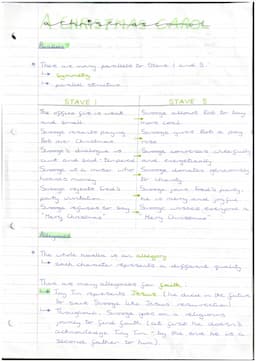 A CHRISTMAS CAROL
Parallels
There are many parallels to Stave 1 and 5.
↳ Symmetry
↳ parallel structure.
STAVE 1 STAVE 5
The office fire is weak → Scrooge allows Bob to buy
and small more coal
Scrooge resents paying → Scrooge gives Bob a pay
Bob over Christmas rise
Scrooge's dialogue is → Scrooge converses cheerfully
curt and bad-tempered and energetically
Scrooge at a miser who → Scrooge donates generously
hoards money to charity
Scrooge rejects Fred's → Scrooge joins Fred's party.
party invitation He is merry and joyful
Scrooge refuses to say → Scrooge wishes everyone a
"Merry Christmas" "Merry Christmas"
Allegories
The whole novella is an allegory
↳ each character represents a different quality
There are many allegories for faith:
↳ Tiny Tim represents Jesus (he dies in the future
to save Scrooge like Jesus' resurrection)
↳ Throughout, Scrooge goes on a religious
journey to find faith (at first he doesn't
acknowledge Tiny Tim, by the end he is a
second father to him).